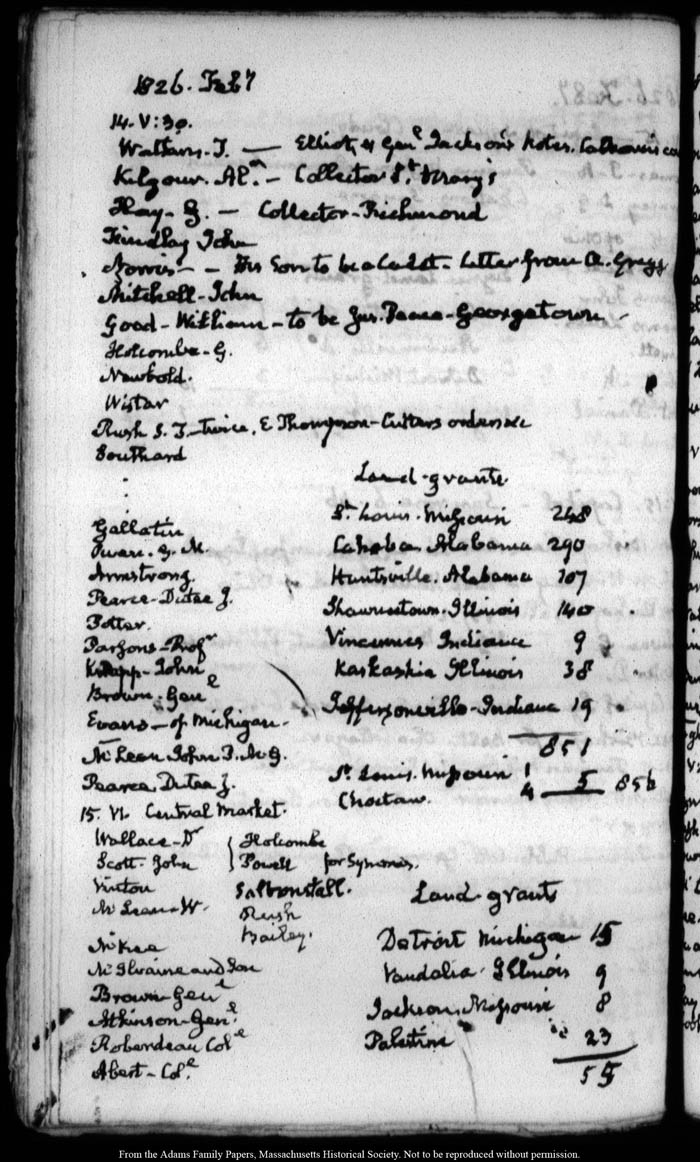 1826. Feb 7
14. V:30.
Watkins. T. — Elliot, & Genl. Jackson's Notes. Calhoun's
Kilgour. Al. — Collector St. Mary's
Hay. G. — Collector-Richmond
Findlay John
Norris — His Son to be a Cadet. Letter from A. Gregg
Mitchell-John
Good-William-to be Jus. Peace-Georgetown
Holcombe. G.
Newbold.
Wistar
Rush S. T. twice. E Thompson-Cutters orders &c
Southard
Land-grants
Gallatin St. Louis. Missouri 248
Owen. G. M. Cahaba. Alabama 290
Armstrong. Huntsville. Alabama 107
Pearce-Dutee J. Shawneetown. Illinois 140
Potter. Vincennes Indiana 9
Parsons-Profr Kaskaskia Illinois 38
Knapp-John
Brown-Genl Jeffersonville-Indiana 19
Evans-of Michigan. 851
McLean John P.M.G. St. Louis. Missouri 1
Pearce. Dutee J. Choctaw. 4 5 856
15. VI. Central Market.
Wallace-Dr { Holcombe
Scott. John { Powell for Symmes.
Vinton Saltonstall. Land-grants
McLean-W. Rush
Bailey. Detroit Michigan 15
McKee
McIlvaine and Son Vandalia. Illinois 9
Brown-Genl
Atkinson-Genl. Jackson. Missouri 8
Roberdeau Coll Palestine 23
Abert-Coll. 55
From the Adams Family Papers, Massachusetts Historical Society. Not to be reproduced without permission.